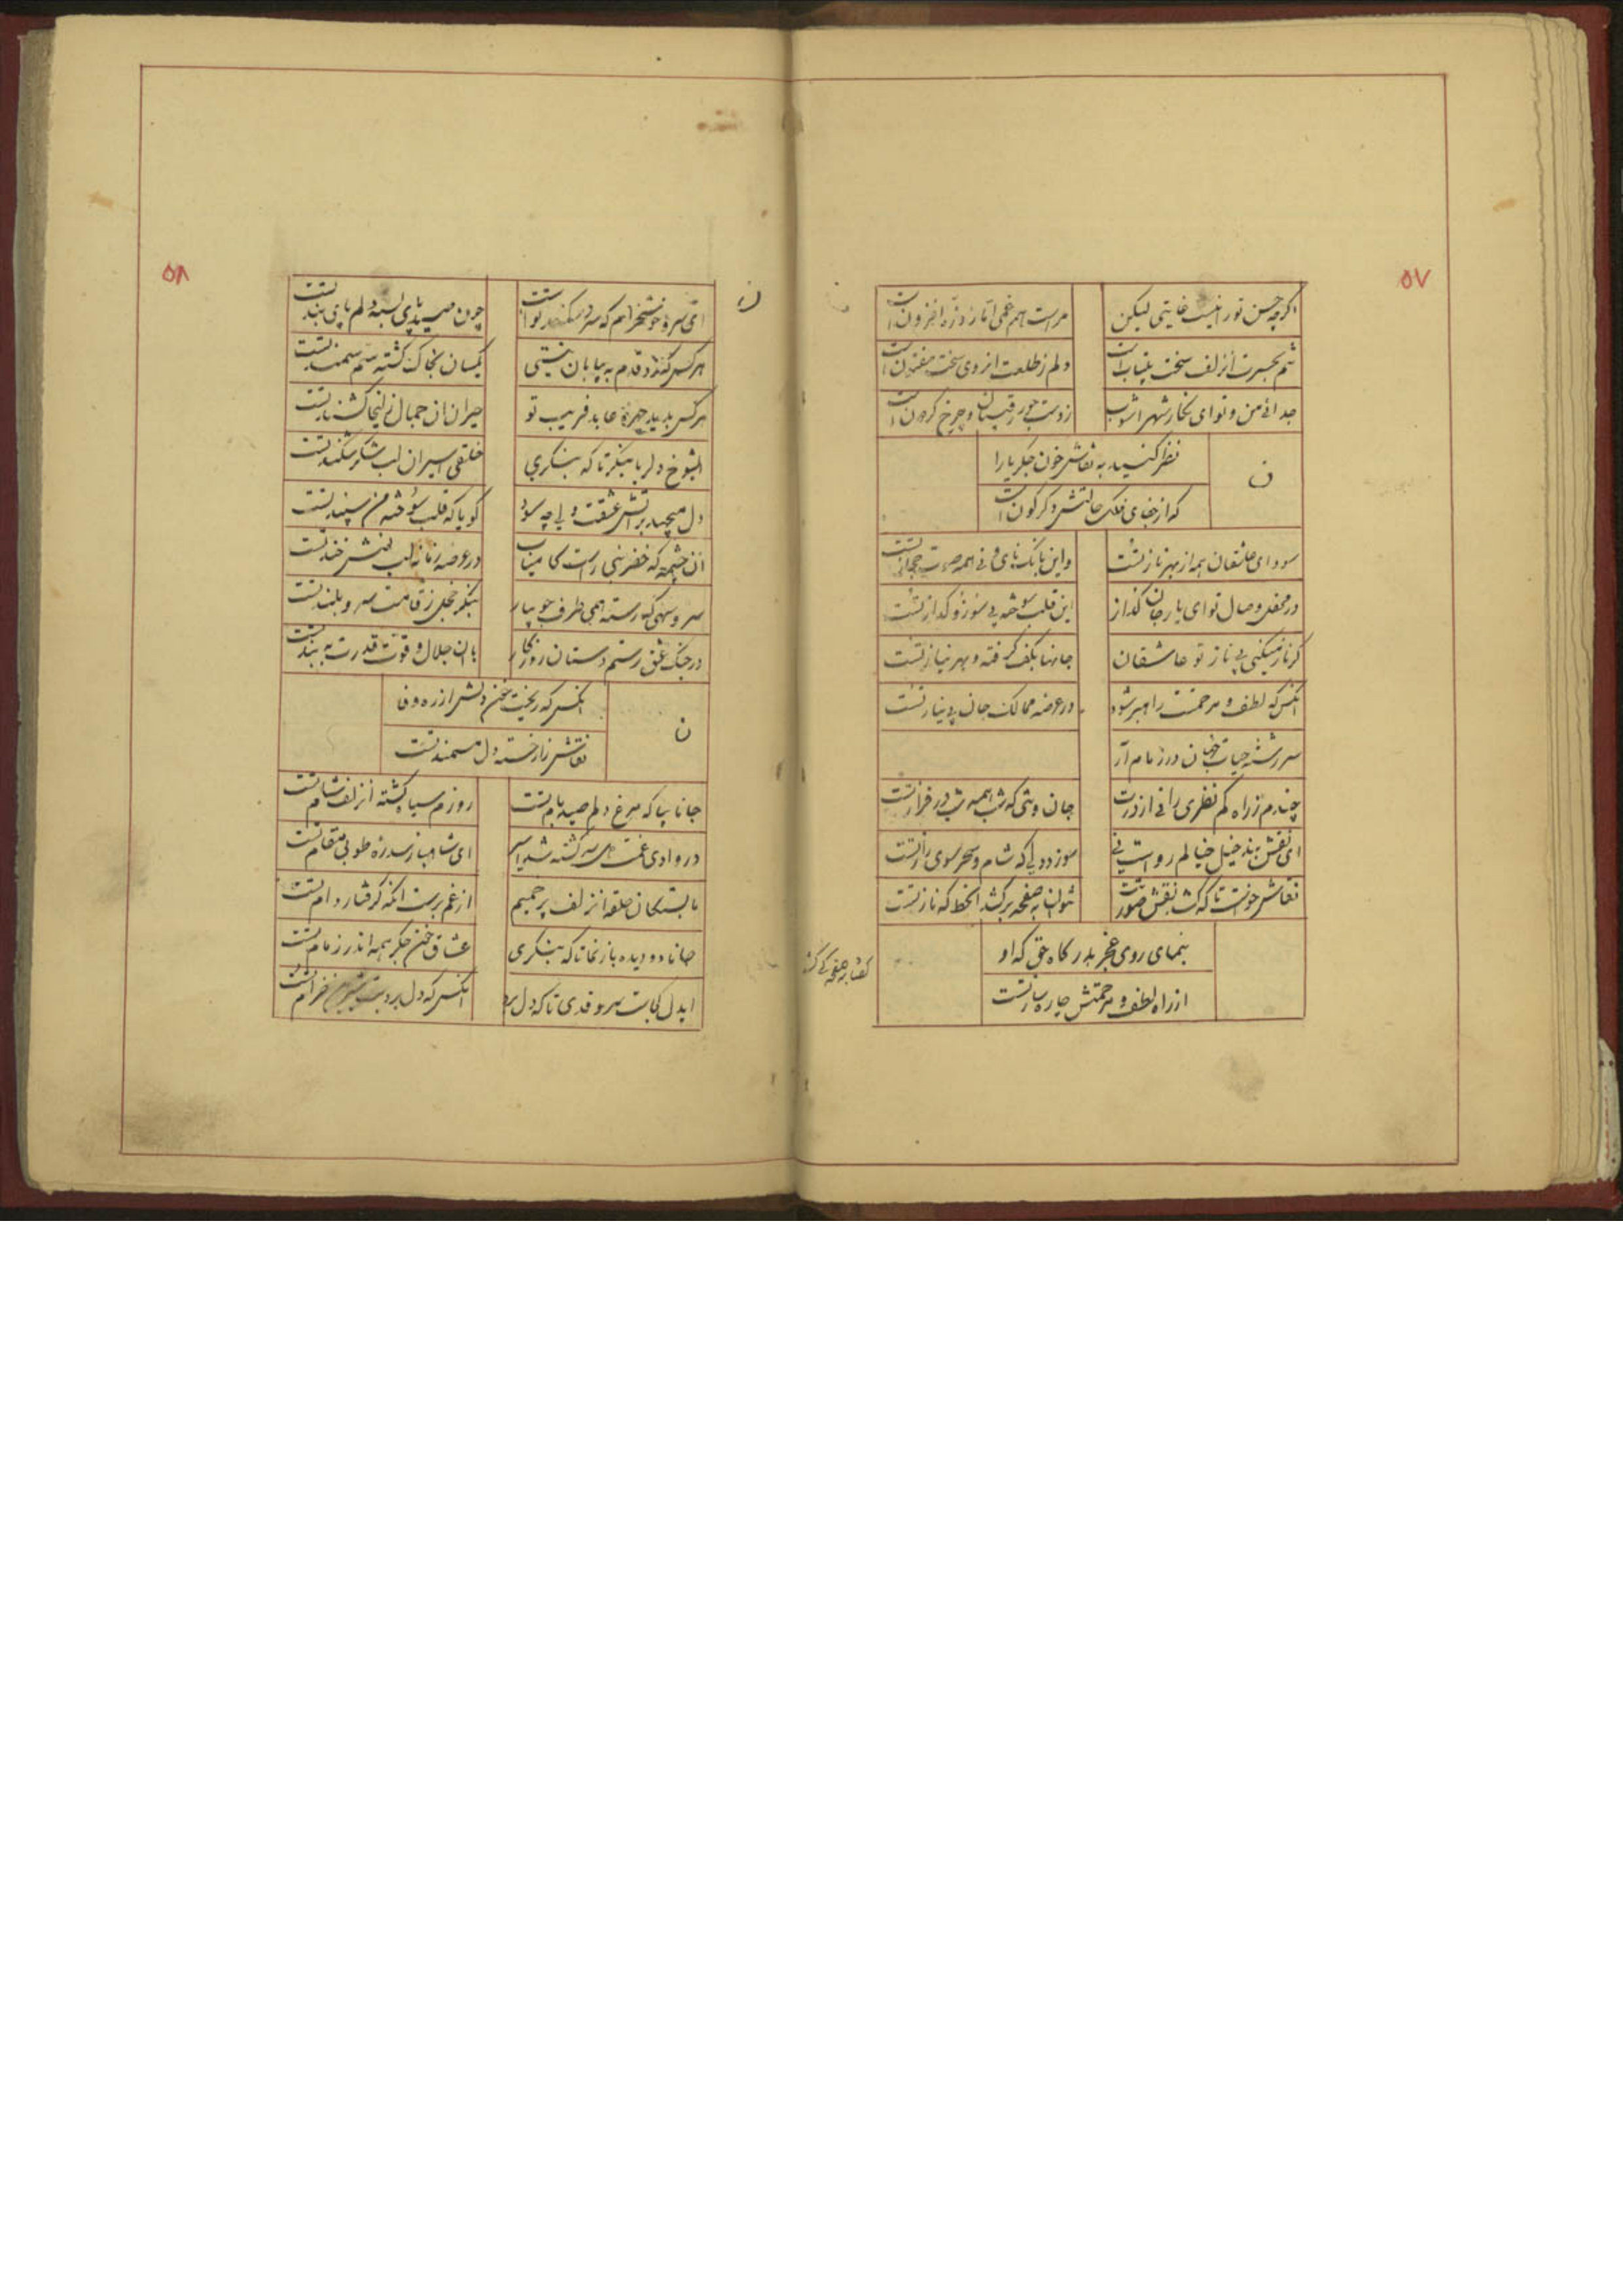 ۵۷
اگرچه حسن تو را نیست غایتی لیکن
مراست هم غمی اما ز ذره افزون است
تنم بحسرت آن زلف سخت بیتاب است
دلم ز طلعت انروی سخت مفتون است
جدائی من و تو ای نگار شهر اشوب
ز دست جور رقیبان و چرخ گردون است
ن
نظر کنید به نقاش خون جگر یارا
که از جفای فلک حالتش دگرگون است
سودای عاشقان همه از بهر ناز تست
واین بانک نای و نی همه صوت تست
در محفل وصال تو ای یار جان گداز
این قلب سوخته پی سوز و گداز تست
گر ناز میکنی پی ناز تو عاشقان
جانها بکف گرفته و بهر نیاز تست
انکس که لطف و مرحمتت راهبر شود
در عرضه ممالک جان بی نیاز تست
سر رشته حیات جهان در زمام آر
چندم ز راه کم نظری رانی از درت
جان وشی که شب همه شب در فراز تست
ای نقش بند خیل خیالم روا ست نی
سوز دلی که شام و سحر سوی راز تست
نقاش خواست تا که کشد نقش صورتت
نتوان به صفحه برکشد انخط که ناز تست
بنمای روی عجز بدرگاه حق که او
از راه لطف و مرحمتش چاره ساز تست
۵۸
ن
ای سرو خوشخرام که سر در کمند تو است
چون صید پای بسته دلم پای بند تست
هر کس نهد قدم به بیابان نیستی
یکسان بخاک گشته سم سمند تست
هر کس بدید چهره عابد فریب تو
حیران ان جمال زلیخا کشند تست
ایشوخ دلربا بنگر تا که بنگری
خلقی اسیر ان لب شکر شکند تست
دل میجهد بر آتش عشقت ولی چه سود
گویا که قلب سوخته من سپند تست
ان چشمه که خضر نبی راست کامیاب
در عرصه زمانه لب نوشخند تست
سرو سهی که رسته همی طرف جویبار
بنگر خجل ز قامت سرو بلند تست
در جنگ عشق رستم دستان روزگار
با ان جلال و قوت قدرت به بند تست
ن
انکس که ریخت خون دلش از ره وفا
نقاش زار خسته دل مستمند تست
جانا بیا که مرغ دلم صید بام تست
روزم سیاه گشته از زلف شام تست
در وادی غمت سرگشته شد اسیر
ای شاهباز سدره طوبی مقام تست
ما بستگان حلقه انزلف پر خمیم
از غم برست انکه گرفتار دام تست
جانا دو دیده باز نما تا که بنگری
عشاق خون جگر همه اندر زمام تست
ایدل کجاست سرو قدی تا که دل برد
انکس که دل برد خرام تست